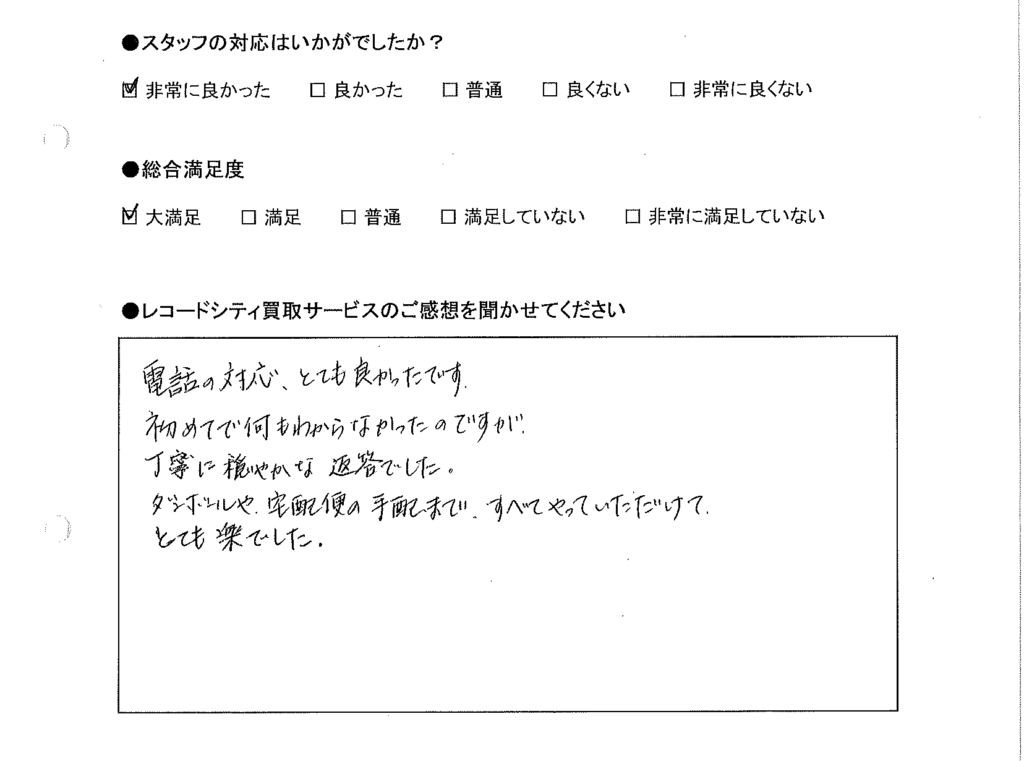 ●スタッフの対応はいかがでしたか？
☑ 非常に良かった □ 良かった □ 普通 □ 良くない □ 非常に良くない
●総合満足度
☑ 大満足 □ 満足 □ 普通 □ 満足していない □ 非常に満足していない
●レコードシティ買取サービスのご感想を聞かせてください
電話の対応、とても良かったです。
初めてで何もわからなかったのですが、
丁寧に穏やかな返答でした。
ダンボールや、宅配便の手配まで、すべてやっていただけて、
とても楽でした。